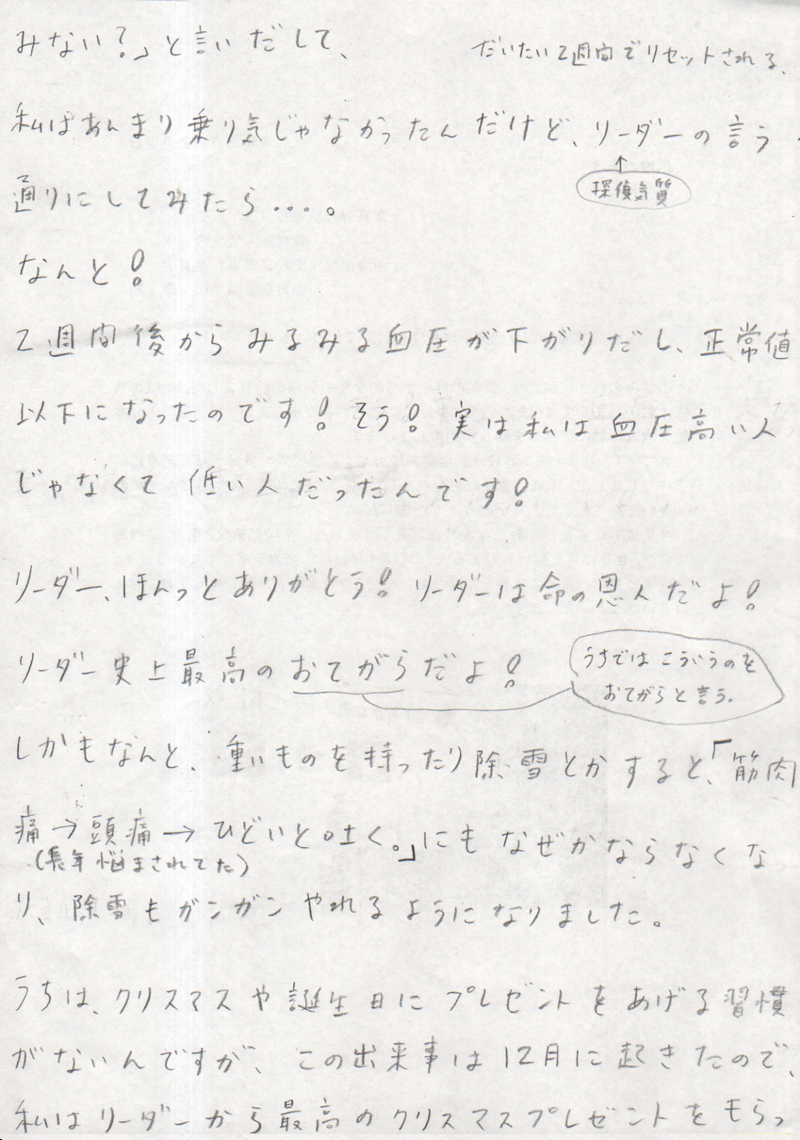 みない?」と言いだして、
だいたい2週間でリセットされる。
私はあんまり乗り気じゃなかったんだけど、リーダーの言う
↑
探偵気質
通りにしてみたら....。
なんと!
2週間後からみるみる血圧が下がりだし、正常値
以下になったのです!そう!実は私は血圧高い人
じゃなくて低い人だったんです!
リーダー、ほんっとありがとう!リーダーは命の恩人だよ!
リーダー史上最高のおてがらだよ!
うちではこういうのを
おてがらと言う.
しかもなんと、重いものを持ったり除雪とかすると、「筋肉
痛→頭痛→ひどいと吐く。」にもなぜかならなくな
(長年悩まされてた)
り、除雪もガンガンやれるようになりました。
うちは、クリスマスや誕生日にプレゼントをあげる習慣
がないんですが、この出来事は12月に起きたので、
私はリーダーから最高のクリスマスプレゼントをもらっ